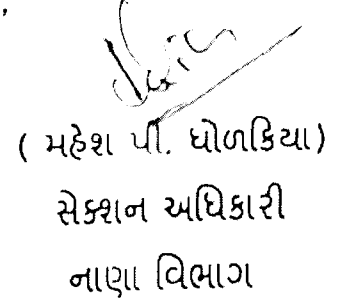 ( મહેશ પી. ધોળકિયા)
સેક્શન અધિકારી
નાણા વિભાગ